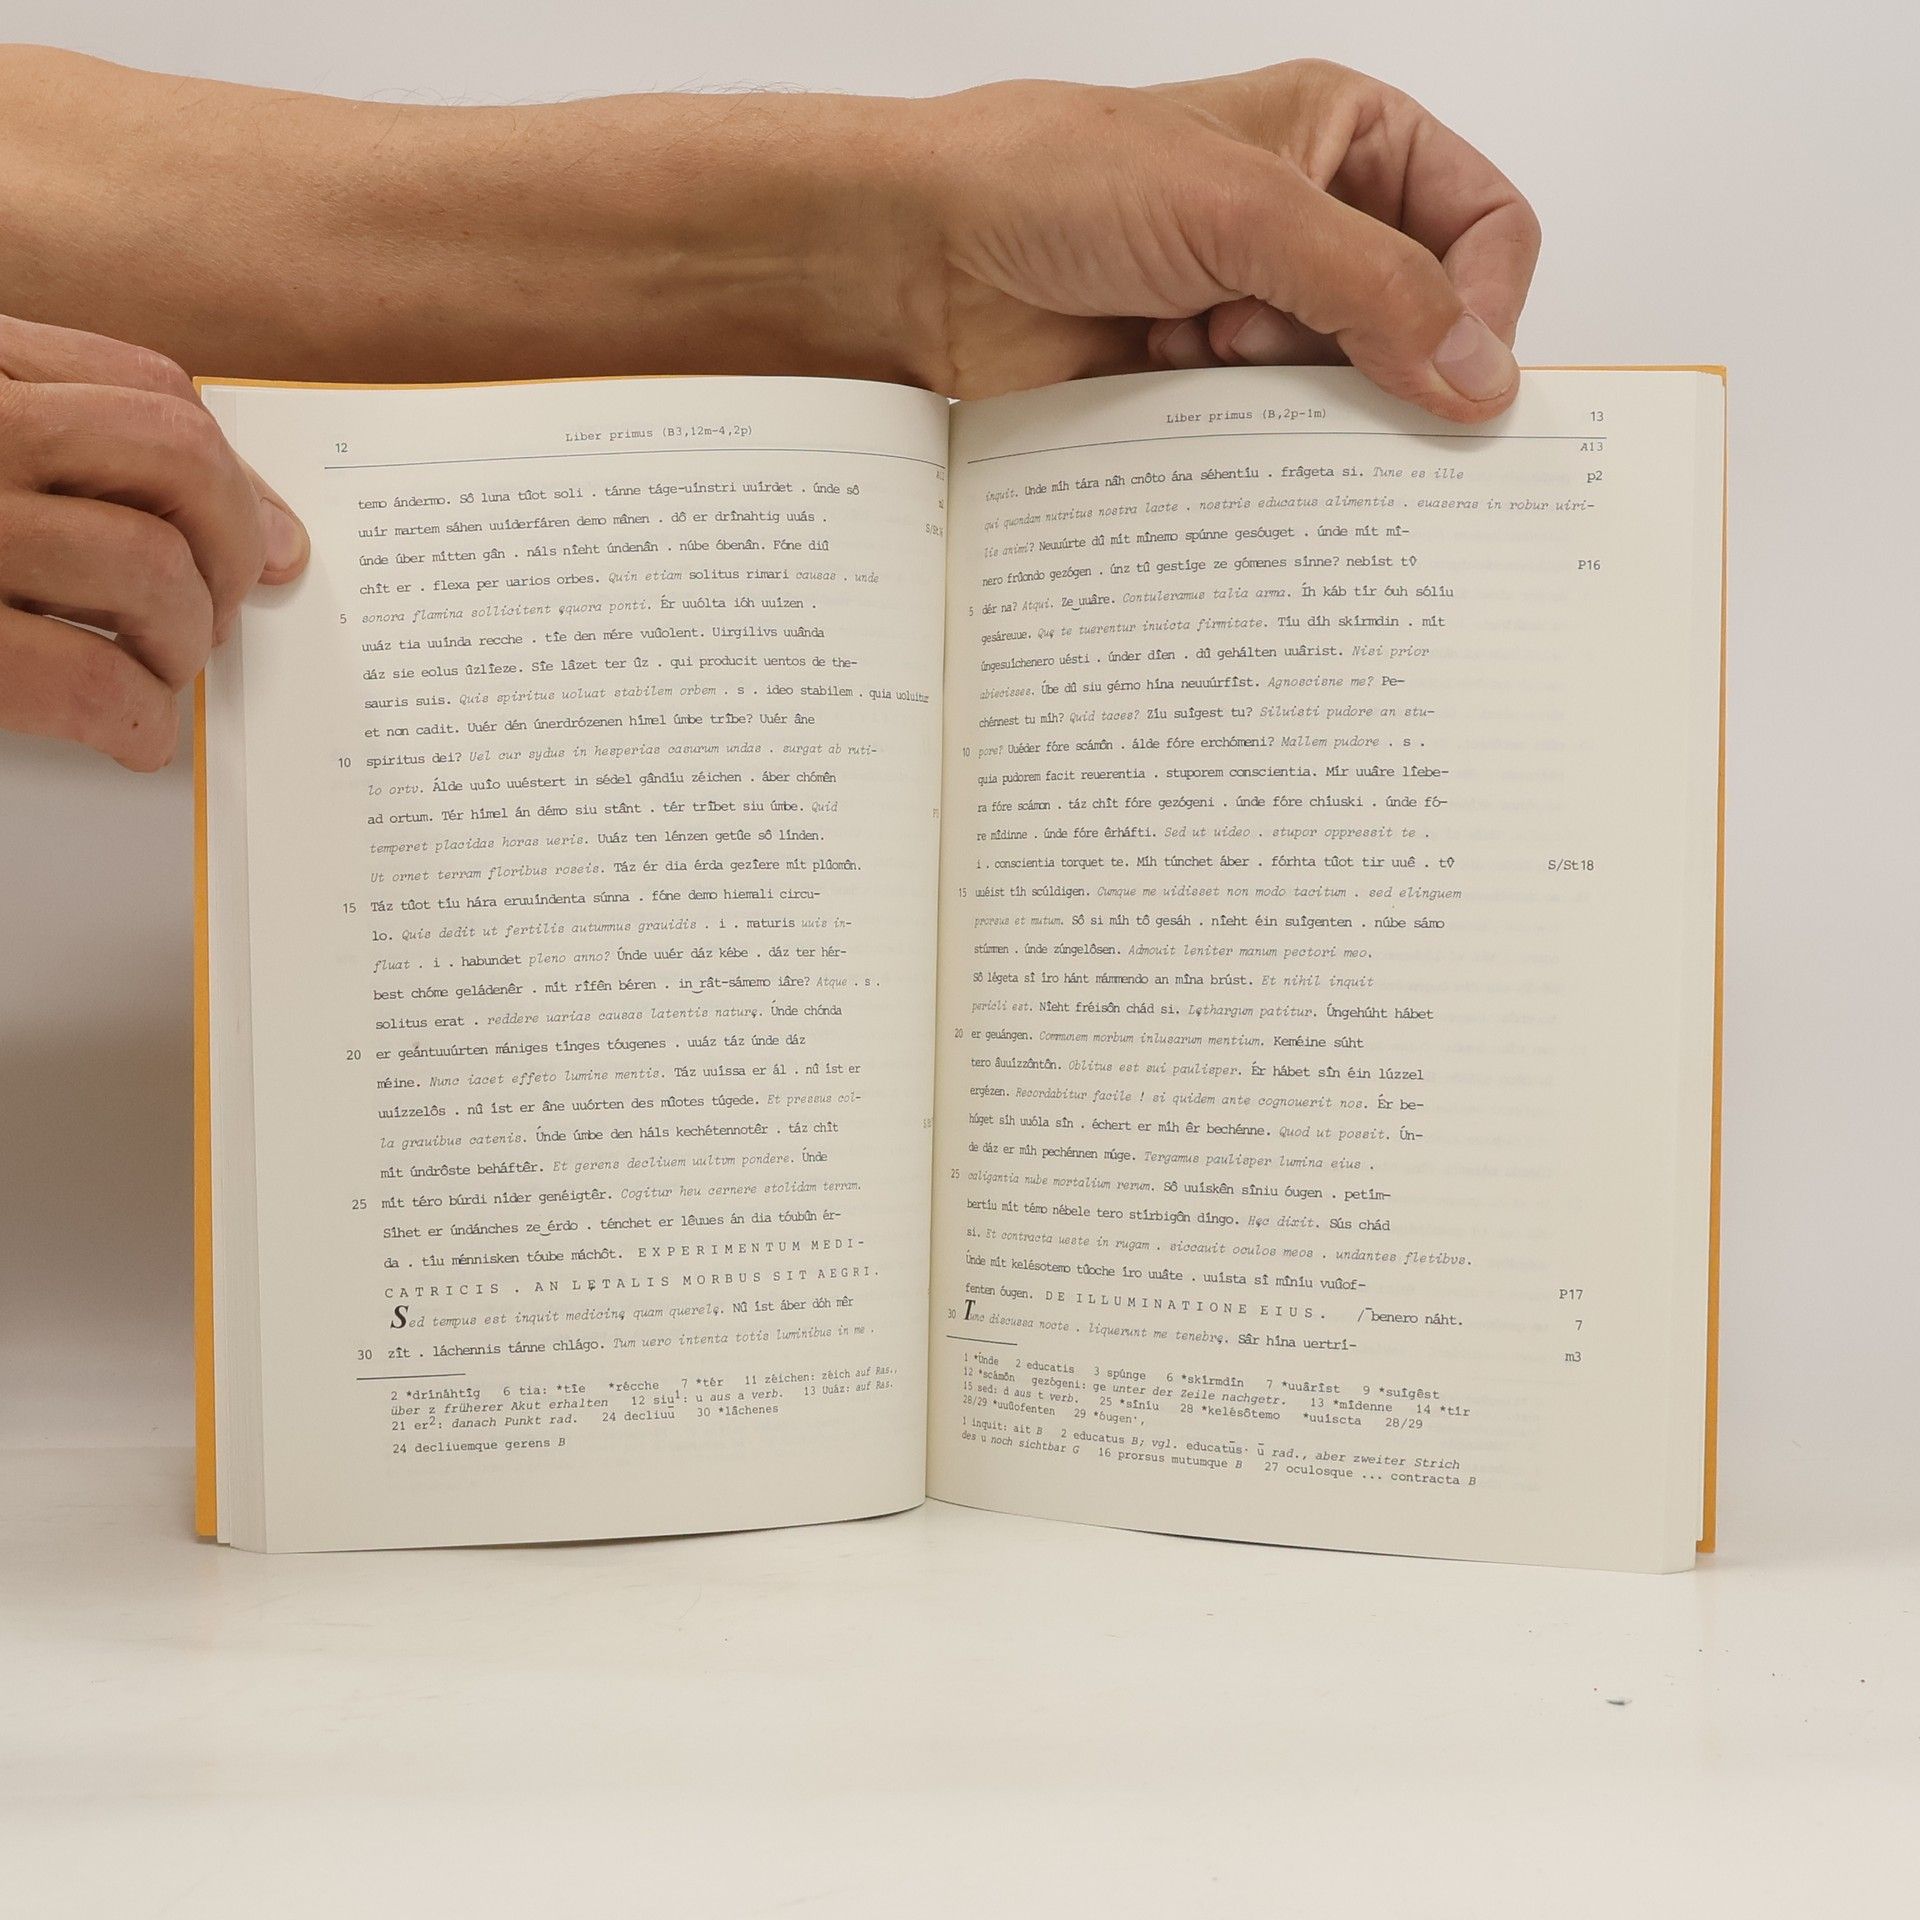 12
Liber primus (B3,12m-4,2p)
temo ándermo. Sô luna tûot soli . tánne táge-uínstri uuírdet . únde sô
uuír martem sáhen uuíderfáren demo mânen . dô er drînahtig uuás .
únde úber mítten gân . náls nîeht úndenân . núbe óbenân. Fóne diû
chît er . flexa per uarios orbes. Quin etiam solitus rimari causas . unde
5 sonora flamina sollicitent ęquora ponti. Ér uuólta ióh uuízen .
uuáz tia uuínda recche . tîe den mére vuûolent. Uirgilivs uuânda
dáz sie eolus ûzlîeze. Sîe lâzet ter ûz . qui producit uentos de the-
sauris suis. Quis spiritus uoluat stabilem orbem . s . ideo stabilem . quia uoluitur
et non cadit. Uuér dén únerdrózenen hímel úmbe trîbe? Uuér âne
10 spiritus dei? Uel cur sydus in hesperias casurum undas . surgat ab ruti-
lo ortv. Álde uuîo uuéstert in sédel gândíu zéichen . áber chómên
ad ortum. Tér hímel án démo siu stânt . tér trîbet siu úmbe. Quid
temperet placidas horas ueris. Uuáz ten lénzen getûe sô línden.
Ut ornet terram floribus roseis. Táz ér dia érda gezîere mít plûomôn.
15 Táz tûot tíu hára eruuíndenta súnna . fóne demo hiemali circu-
lo. Quis dedit ut fertilis autumnus grauidis . i . maturis uuis in-
fluat . i . habundet pleno anno? Únde uuér dáz kébe . dáz ter hér-
best chóme geládenêr . mít rîfên béren . in‿rât-sámemo iâre? Atque . s .
solitus erat . reddere uarias causas latentis naturę. Únde chónda
20 er geántuuúrten mániges tínges tóugenes . uuáz táz únde dáz
méine. Nunc iacet effeto lumine mentis. Táz uuíssa er ál . nû íst er
uuízzelôs . nû íst er âne uuórten des mûotes túgede. Et pressus col-
la grauibus catenis. Únde úmbe den háls kechétennotêr . táz chît
mít úndrôste beháftêr. Et gerens decliuem uultvm pondere. Únde
25 mít téro búrdi níder genéigtêr. Cogitur heu cernere stolidam terram.
Síhet er úndánches ze‿érdo . ténchet er lêuues án dia tóubûn ér-
da . tîu ménnisken tóube máchôt. EXPERIMENTUM MEDI-
CATRICIS . AN LĘTALIS MORBUS SIT AEGRI.
Sed tempus est inquit medicinę quam querelę. Nû íst áber dóh mêr
30 zît . láchennis tánne chlágo. Tum uero intenta totis luminibus in me .
2 *drînáhtîg 6 tia: *tîe *récche 7 *tér 11 zéichen: zéich auf Ras.,
über z früherer Akut erhalten 12 siu¹: u aus a verb. 13 Uuáz: auf Ras.
21 er²: danach Punkt rad. 24 decliuū 30 *lâchenes
24 decliuemque gerens B
Liber primus (B,2p-1m)
13
A13
inquit. Únde míh tára nâh cnôto ána séhentíu . frâgeta si. Tune es ille
p2
qui quondam nutritus nostra lacte . nostris educatus alimentis . euaseras in robur uiri-
lis animi? Neuuúrte dû mít mînemo spúnne gesóuget . únde mít mî-
nero frûondo gezógen . únz tû gestîge ze gómenes sínne? nebíst tû
P16
5 dér na? Atqui. Ze‿uuâre. Contuleramus talia arma. Íh káb tír óuh sólíu
gesáreuue. Quę te tuerentur inuicta firmitate. Tíu díh skírmdin . mít
úngesuíchenero uésti . únder díen . dû gehálten uuârist. Nisi prior
abiecisses. Úbe dû siu gérno hína neuuúrfîst. Agnoscisne me? Pe-
chénnest tu míh? Quid taces? Zíu suîgest tu? Siluisti pudore an stu-
10 pore? Uuéder fóre scámôn . álde fóre erchómeni? Mallem pudore . s .
quia pudorem facit reuerentia . stuporem conscientia. Mír uuâre lîebe-
ra fóre scámon . táz chît fóre gezógeni . únde fóre chíuski . únde fó-
re mîdinne . únde fóre êrháfti. Sed ut uideo . stupor oppressit te .
i . conscientia torquet te. Míh túnchet áber . fórhta tûot tir uuê . tû
S/St18
15 uuéist tíh scúldigen. Cumque me uidisset non modo tacitum . sed elinguem
prorsus et mutum. Sô si míh tô gesáh . nîeht éin suîgenten . núbe sámo
stúmmen . únde zúngelôsen. Admouit leniter manum pectori meo.
Sô légeta sî íro hánt mámmendo an mîna brúst. Et nihil inquit
pericli est. Nîeht fréisôn chád si. Lęthargum patitur. Úngehúht hábet
20 er geuángen. Communem morbum inlusarum mentium. Keméine súht
tero âuuízzôntôn. Oblitus est sui paulisper. Ér hábet sîn éin lúzzel
ergézen. Recordabitur facile ! si quidem ante cognouerit nos. Ér be-
húget síh uuóla sîn . échert er míh êr bechénne. Quod ut possit. Ún-
de dáz er míh pechénnen múge. Tergamus paulisper lumina eius .
25 caligantia nube mortalium rerum. Sô uuískên sîniu óugen . petím-
bertíu mít témo nébele tero stírbigôn díngo. Hęc dixit. Sús chád
si. Et contracta ueste in rugam . siccauit oculos meos . undantes fletibvs.
Únde mít kelésotemo tûoche íro uuâte . uuísta sî mîníu vuûof-
P17
fenten óugen. DE ILLUMINATIONE EIUS. /¯benero náht.
7
30 Tunc discussa nocte . liquerunt me tenebrę. Sâr hína uertrí-
m3
1 *Únde 2 educatis 3 spúnge 6 *skírmdîn 7 *uuârîst 9 *suîgêst
12 *scámôn gezógeni: ge unter der Zeile nachgetr. 13 *mîdenne 14 *tír
15 sed: d aus t verb. 25 *sîníu 28 *kelésôtemo *uuíscta 28/29
28/29 *uuûofenten 29 *óugen·,
1 inquit: ait B 2 educatus B; vgl. educatūs· ū rad., aber zweiter Strich
des u noch sichtbar G 16 prorsus mutumque B 27 oculosque ... contracta B